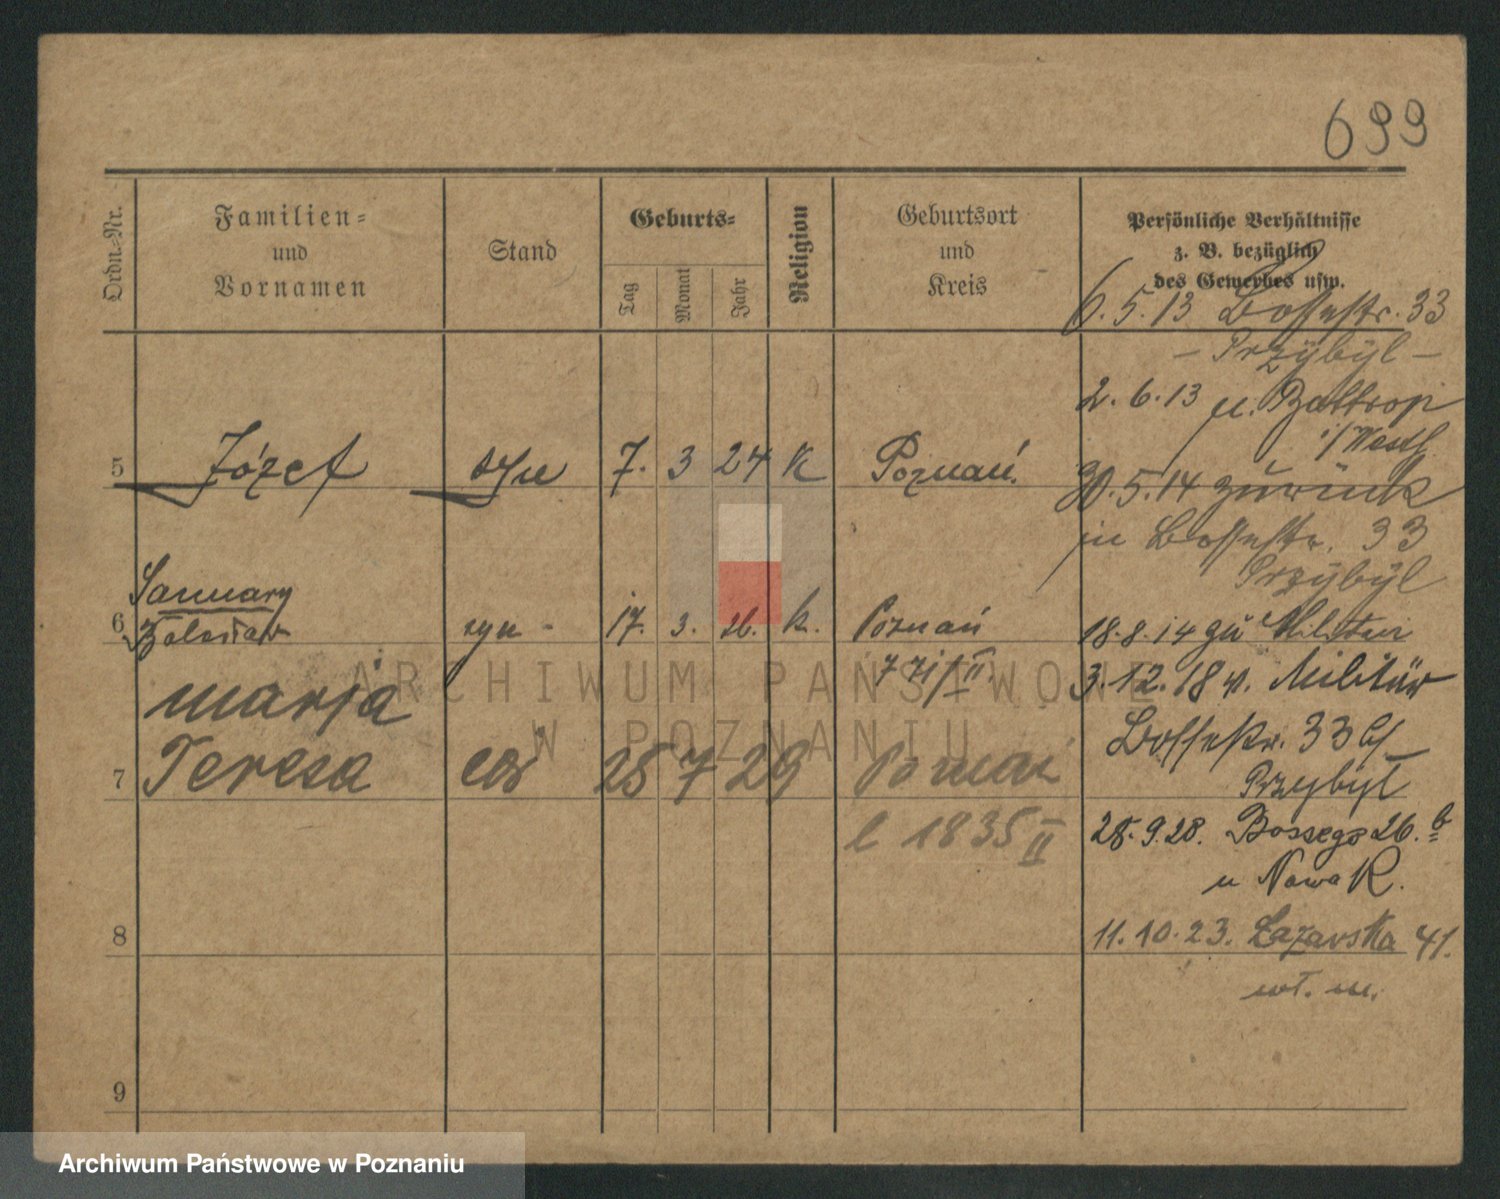 699
Ordn.-Nr.
Familien-
und
Vornamen
Stand
Geburts-
Tag
Monat
Jahr
Religion
Geburtsort
und
Kreis
Persönliche Verhältnisse
z. B. bezüglich
des Gewerbes usw.
6.5.13 Bossestr. 33
- Przybyl -
2.6.13 n. Bottrop
i/Westf
5 Józef syn 7. 3 24 K Poznań.
30.5.14 zurück
in Bossestr. 33
Przybyl
January
6 syn - 17. 3. 26. k. Poznań
18.8.14 zu Militär
771/II.
3.12.18 v. Militär
Bossestr. 33
Przybyl
Marja
7 Teresa 25 7 29 Poznań
l 1835 II
28.9.28. Bossego 26. b
u Nowak.
8
11.10.23. Łazarska 41.
9
ARCHIWUM PAŃSTWOWE
W POZNANIU
Archiwum Państwowe w Poznaniu